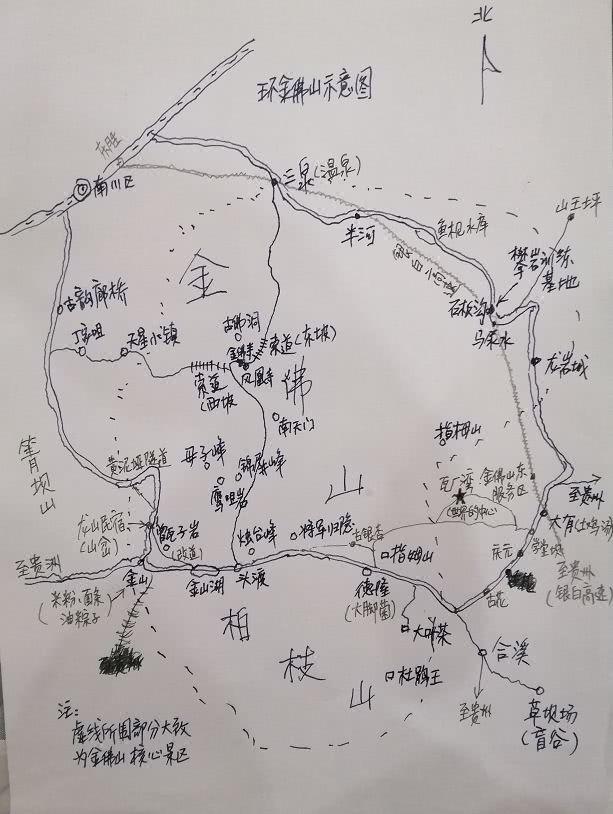 北
环金佛山示意图
水胜
南川区
三泉(温泉)
半河
鱼枧水库
山王坪
攀岩训练
基地
石板沟
马来水
龙岩城
银白高速
金
佛
山
古韵廊桥
丁家咀
天星小镇
古佛洞
金佛寺
索道(东坡)
凤凰寺
索道
西坡
南天门
指拇山
箐坝山
黄泥垭隧道
母子峰
锦屏峰
鹰咀岩
瓦厂湾
(世界的中心)
金佛山东
服务区
至贵州
龙山民宿
(山岔)
甑子岩
(改道)
烛台峰
将军归隐
古银杏
指拇山
大有(土鸡汤)
学堂坡
庆元
古花
至贵州
(银白高速)
至贵州
金山
(米粉、面条
油粽子)
金山湖
头渡
德隆
(大脚菌)
柏
枝
山
大叶茶
杜鹃王
合溪
至贵州
草坝场
(盲谷)
注:
虚线所围部分大致
为金佛山核心景区